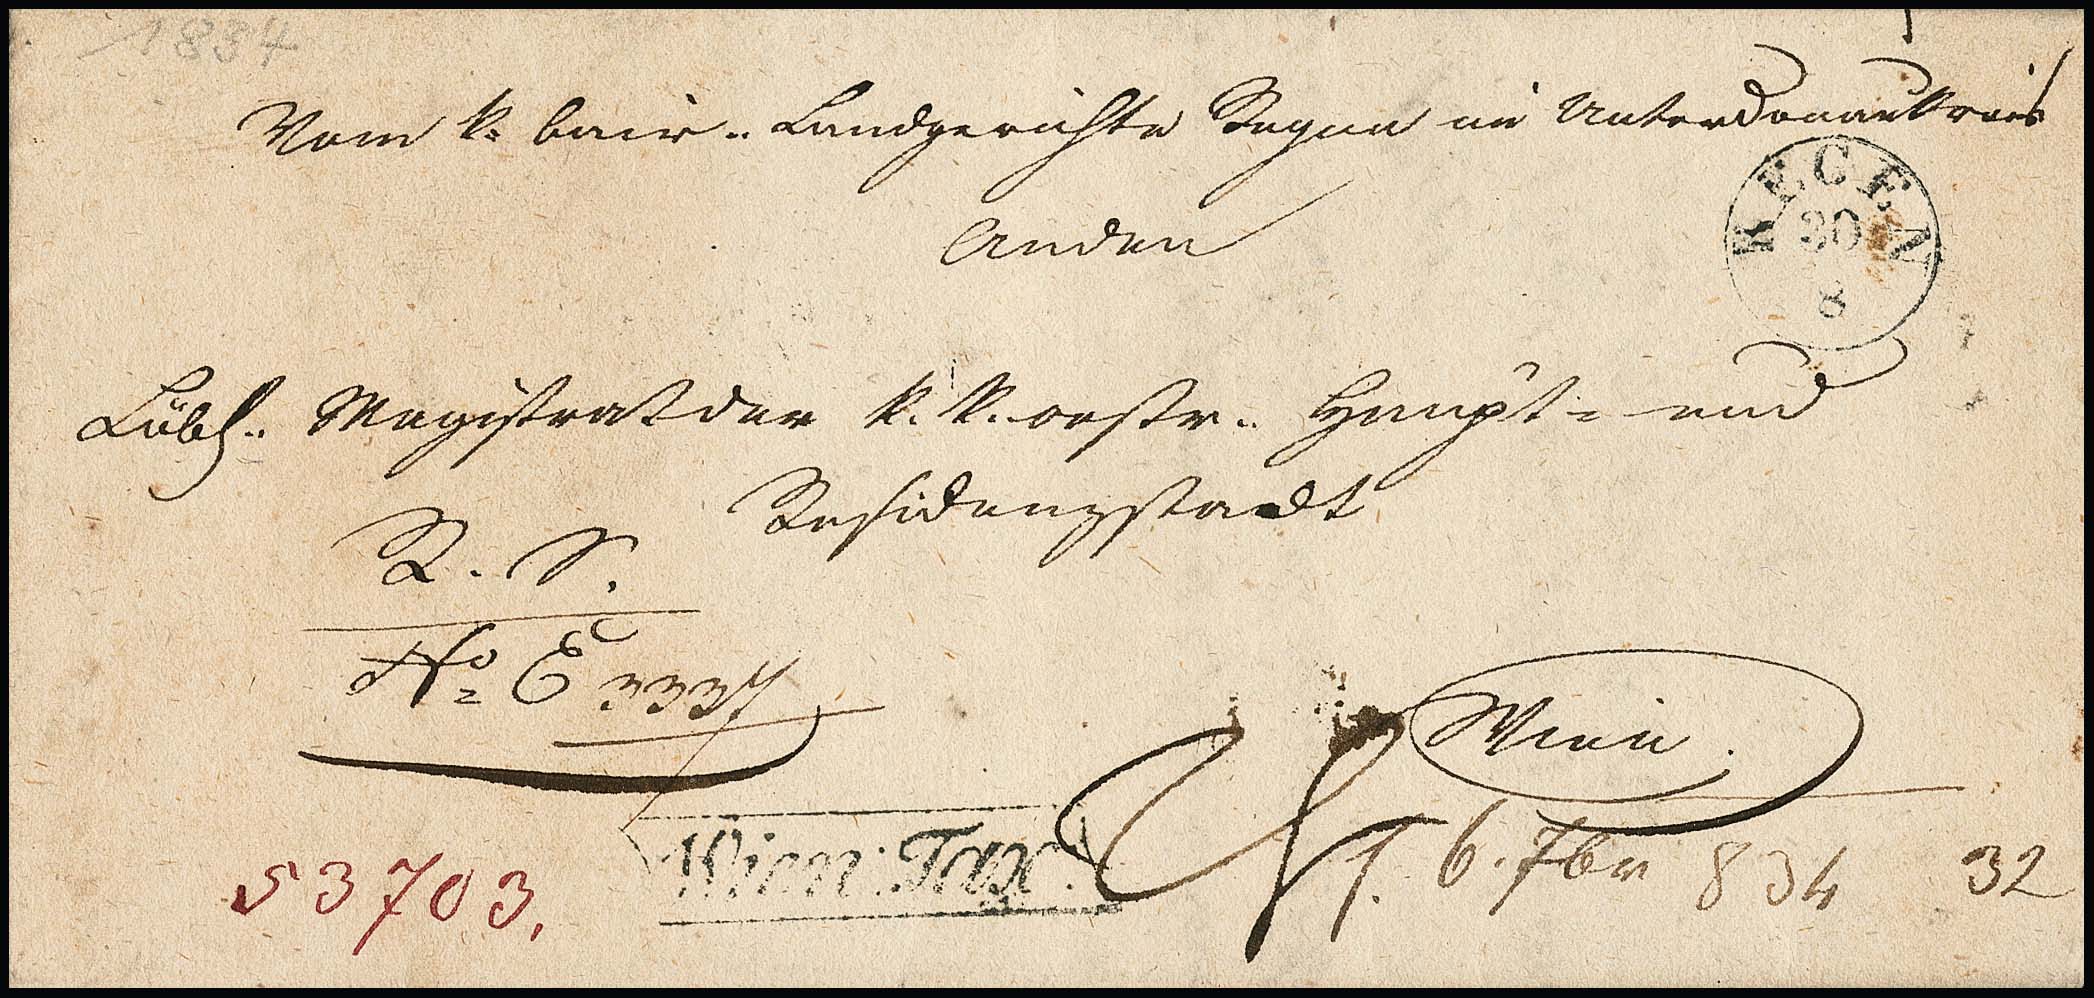 1834
Vom k. bair. Landgerichte Regen im Unterdonaukreis
REGEN
30
8
An den
Löbl. Magistrat der k. k. oestr. Haupt- und
Residenzstadt
R. S.
No E 3337
Wien.
Wien: Tax:
53703.
6. 7br 834
32